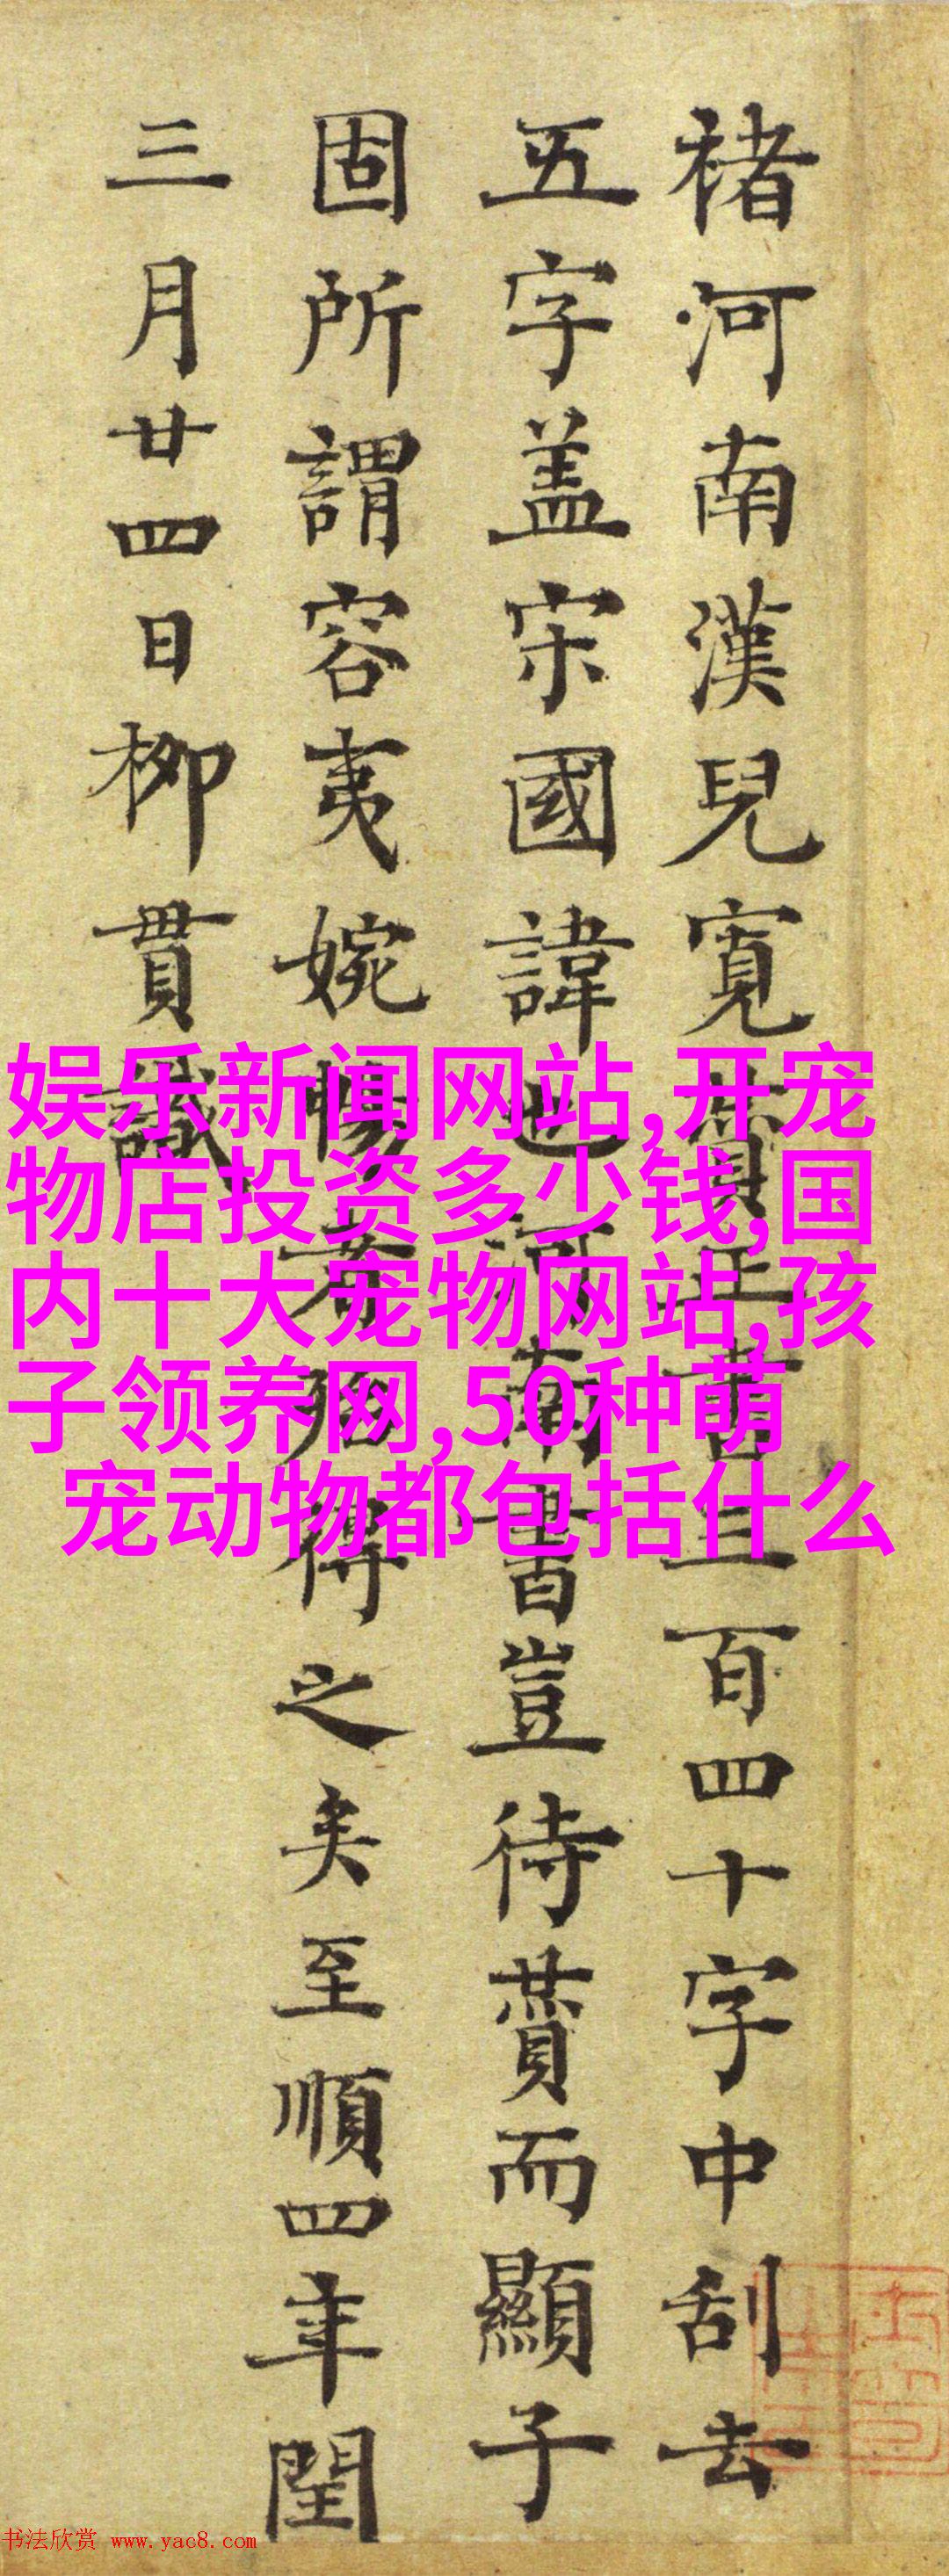 褚河南漢兒寬賛正書三百四十字中刮去
五字盖宋國諱也河南書豈待賛而顯子
固所謂容夷婉暢者殆得之矣至順四年閏
三月廿四日柳貫識
娱乐新闻网站,开宠
物店投资多少钱,国
内十大宠物网站,孩
子领养网,50种萌
宠动物都包括什么
书法欣赏 www.yac8.com